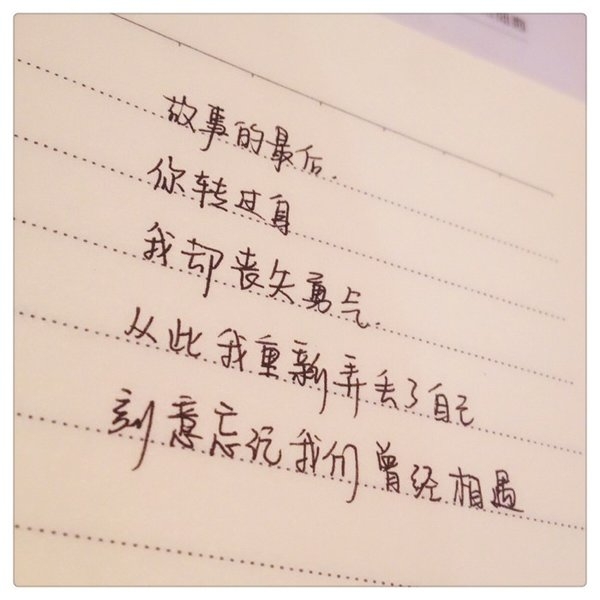 故事的最后.
你转过身
我却丧失勇气.
从此我重新弄丢了自己
刻意忘记我们曾经相遇